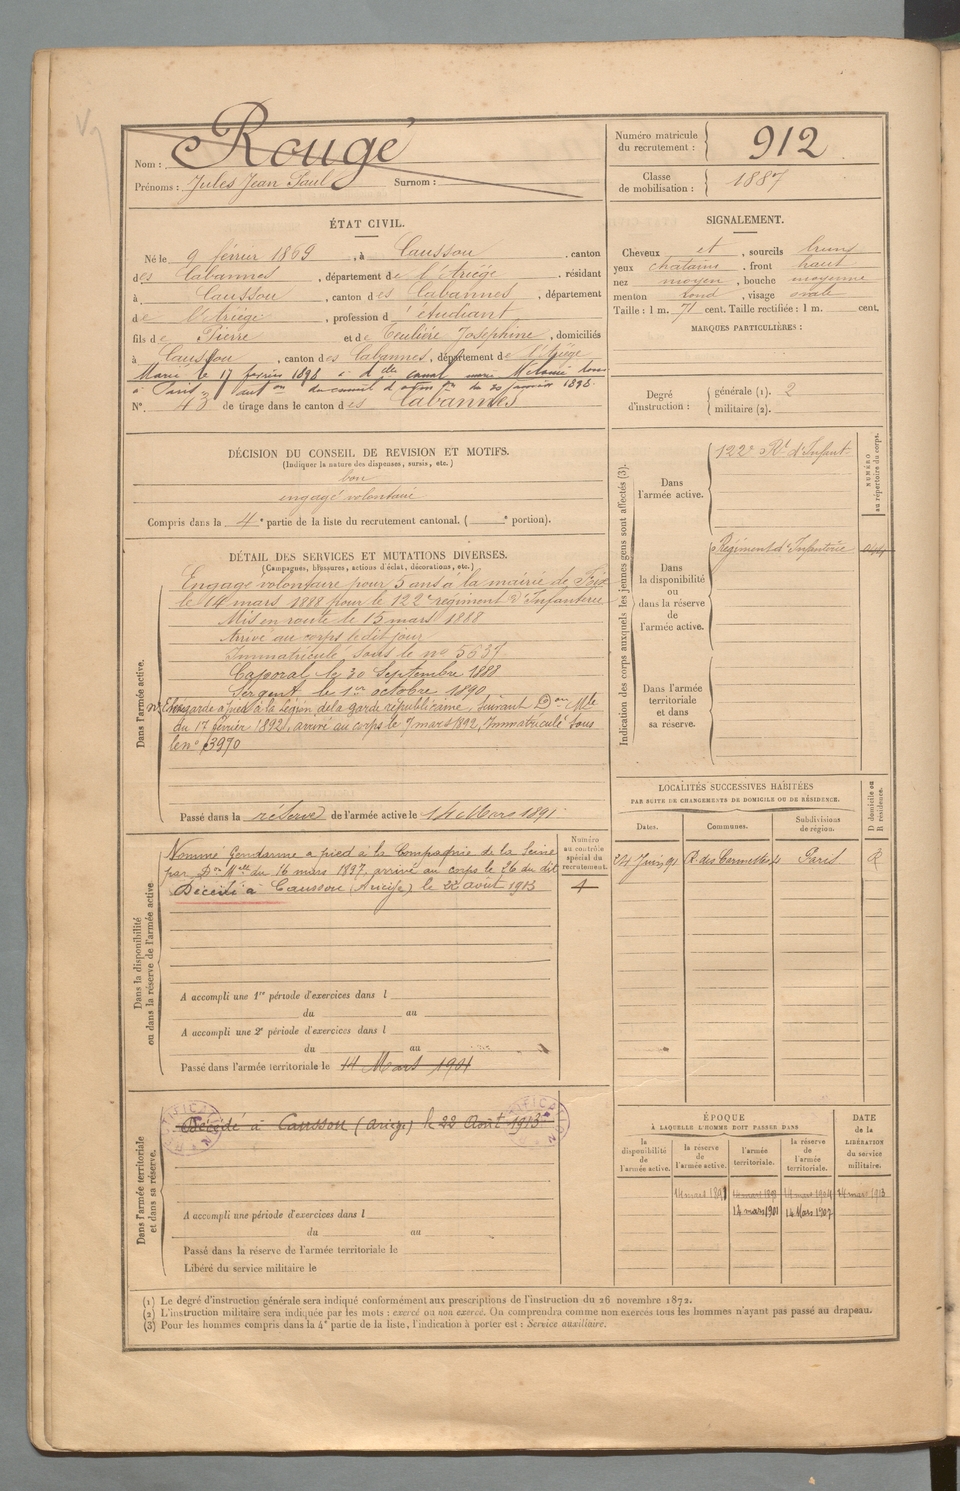 Rougé
Nom :
Prénoms : Jules Jean Paul Surnom :
Numéro matricule du recrutement : 912
Classe de mobilisation : 1887
ÉTAT CIVIL.
Né le 9 février 1869, à Caussou, canton
des Cabannes, département de l'Ariège, résidant
à Caussou, canton des Cabannes, département
de l'Ariège, profession d'étudiant
fils de Pierre et de Teulière Joséphine, domiciliés
à Caussou, canton des Cabannes, département de l'Ariège
Marié le 17 février 1898 à dlle
à Paris, du conseil d' du 20 janvier 1898.
N° 43 de tirage dans le canton des Cabannes
SIGNALEMENT.
Cheveux et, sourcils bruns
yeux chatains, front haut
nez moyen, bouche moyenne
menton rond, visage ovale
Taille : 1 m. 71 cent. Taille rectifiée : 1 m. cent.
MARQUES PARTICULIÈRES :
Degré d'instruction : générale (1). 2
militaire (2).
DÉCISION DU CONSEIL DE REVISION ET MOTIFS.
(Indiquer la nature des dispenses, sursis, etc.)
bon
engagé volontaire
Compris dans la 4e partie de la liste du recrutement cantonal. ( e portion).
DÉTAIL DES SERVICES ET MUTATIONS DIVERSES.
(Campagnes, blessures, actions d'éclat, décorations, etc.)
Dans l'armée active.
Engagé volontaire pour 5 ans à la mairie de Foix
le 14 mars 1888 pour le 122e régiment d'Infanterie
Mis en route le 15 mars 1888
Arrivé au corps le dit jour
Immatriculé sous le no 5637
Caporal le 30 Septembre 1888
Sergent le 1er octobre 1890
garde à pied à la Légion de la garde républicaine, suivant Don Mlle
du 17 février 1892, arrivé au corps le 7 mars 1892, Immatriculé sous
le no 3970
Passé dans la réserve de l'armée active le 14 Mars 1891
Indication des corps auxquels les jeunes gens sont affectés (3).
NUMÉRO au répertoire du corps.
Dans l'armée active.
122e Rt d'Infant
Dans la disponibilité ou dans la réserve de l'armée active.
Régiment d'Infanterie
Dans l'armée territoriale et dans sa réserve.
LOCALITÉS SUCCESSIVES HABITÉES
PAR SUITE DE CHANGEMENTS DE DOMICILE OU DE RÉSIDENCE.
Dates. Communes. Subdivisions de région. D domicile ou R résidence.
Juin 91 R. des Paris R
Dans la disponibilité ou dans la réserve de l'armée active.
Nommé Gendarme à pied à la Compagnie de la Seine
par Don Mlle du 16 mars 1897, arrivé au corps le 26 du dit
Décédé à Caussou (Ariège) le 22 août 1913
Numéro au contrôle spécial du recrutement.
1
A accompli une 1re période d'exercices dans l
du au
A accompli une 2e période d'exercices dans l
du au
Passé dans l'armée territoriale le 14 Mars 1901
Dans l'armée territoriale et dans sa réserve.
Décédé à Caussou (Ariège) le 22 Août 1913
A accompli une période d'exercices dans l
du au
Passé dans la réserve de l'armée territoriale le
Libéré du service militaire le
ÉPOQUE
À LAQUELLE L'HOMME DOIT PASSER DANS
DATE de la LIBÉRATION du service militaire.
la disponibilité de l'armée active. la réserve de l'armée active. l'armée territoriale. la réserve de l'armée territoriale.
14 mars 1891
14 mars 1901 14 Mars 1907
(1) Le degré d'instruction générale sera indiqué conformément aux prescriptions de l'instruction du 26 novembre 1872.
(2) L'instruction militaire sera indiquée par les mots : exercé ou non exercé. On comprendra comme non exercés tous les hommes n'ayant pas passé au drapeau.
(3) Pour les hommes compris dans la 4e partie de la liste, l'indication à porter est : Service auxiliaire.